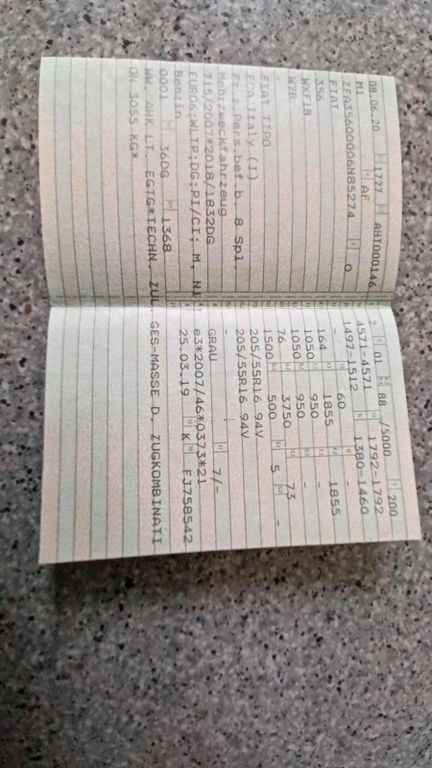 08.06.20 1727 AHT000146
M1 AF
ZFA35600006N85274 0
FIAT
356
WXF1B
W7B
FIAT TIPO
FCA Italy (I)
Fz.z.Pers.bef.b. 8 Spl.
Mehrzweckfahrzeug
715/2007*2018/1832DG
EURO6;WLTP;DG;PI/CI; M, N1 I
Benzin
0001 36DG 1368
WW. AHK LT. EGTG*TECHN. ZUL. GES-MASSE D. ZUGKOMBINATI
ON 3055 KG*
2 01 88 /5000 200
4571-4571 1792-1792
1497-1512 1380-1460
- 60 -
164 1855 1855
1050 950 -
1050 950 -
76 3750 73
1500 500 5 -
205/55R16 94V
205/55R16 94V
-
GRAU 7/-
e3*2007/46*0373*21
25.03.19 K FJ758542